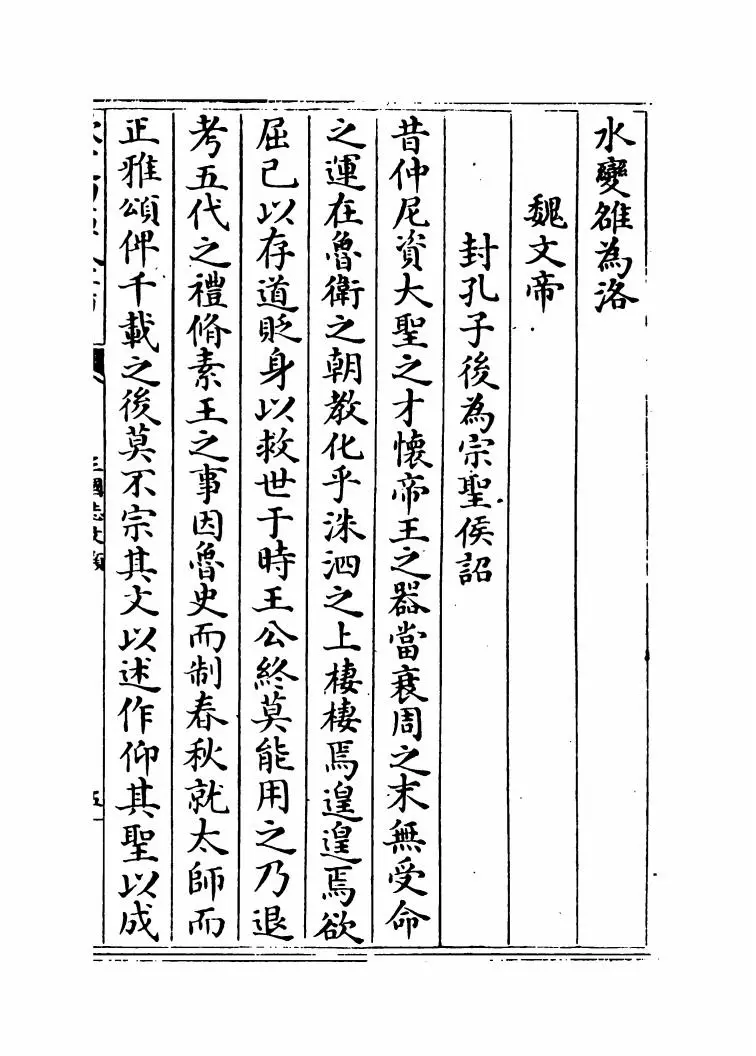 水變雒為洛
魏文帝
封孔子後為宗聖侯詔
昔仲尼資大聖之才懷帝王之器當衰周之末無受命
之運在魯衛之朝教化乎洙泗之上棲棲焉遑遑焉欲
屈己以存道貶身以救世于時王公終莫能用之乃退
考五代之禮脩素王之事因魯史而制春秋就太師而
正雅頌俾千載之後莫不宗其文以述作仰其聖以成
三國志文類
五